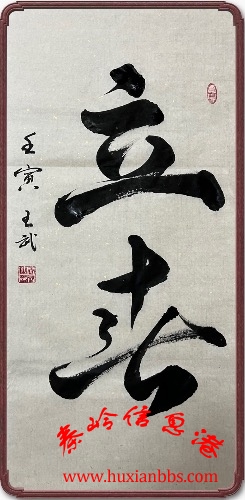 立春
壬寅 王武
秦岭信息港
www.huxianbbs.com